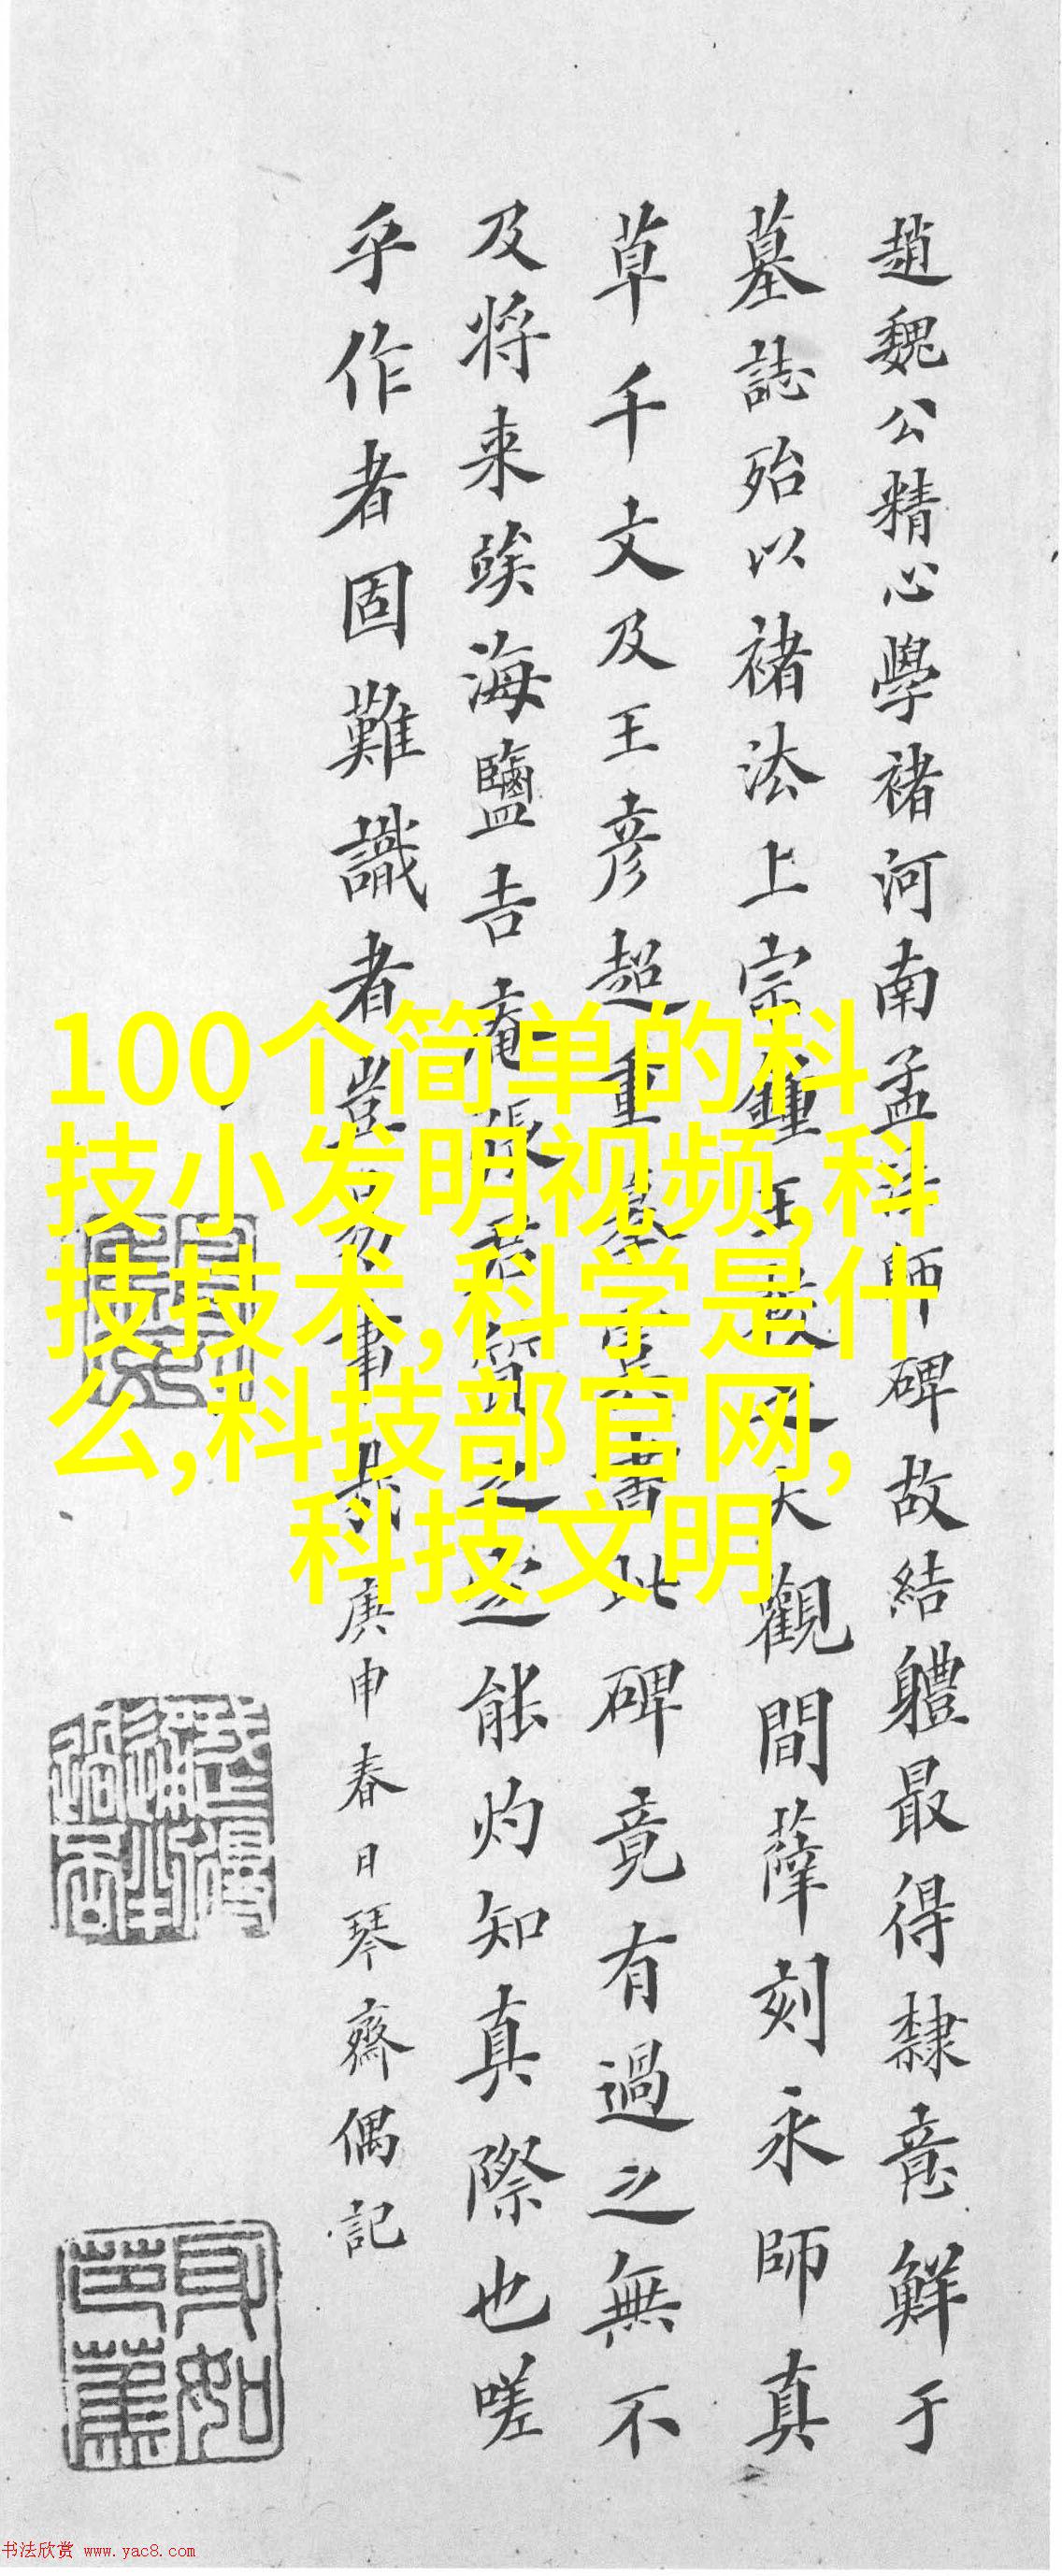 趙魏公精心學褚河南孟法師碑故結軆最得隸意鮮于
墓誌殆以褚法上宗鍾王天觀間薛刻永師真
草千文及王彦超重此碑竟有過之無不
及将来竢海鹽吉庵張之能灼知真際也嗟
乎作者固難識者豈易事哉庚申春日琴齋偶記
100个简单的科
技小发明视频,科
技技术,科学是什
么,科技部官网,
科技文明
书法欣赏 www.yac8.com